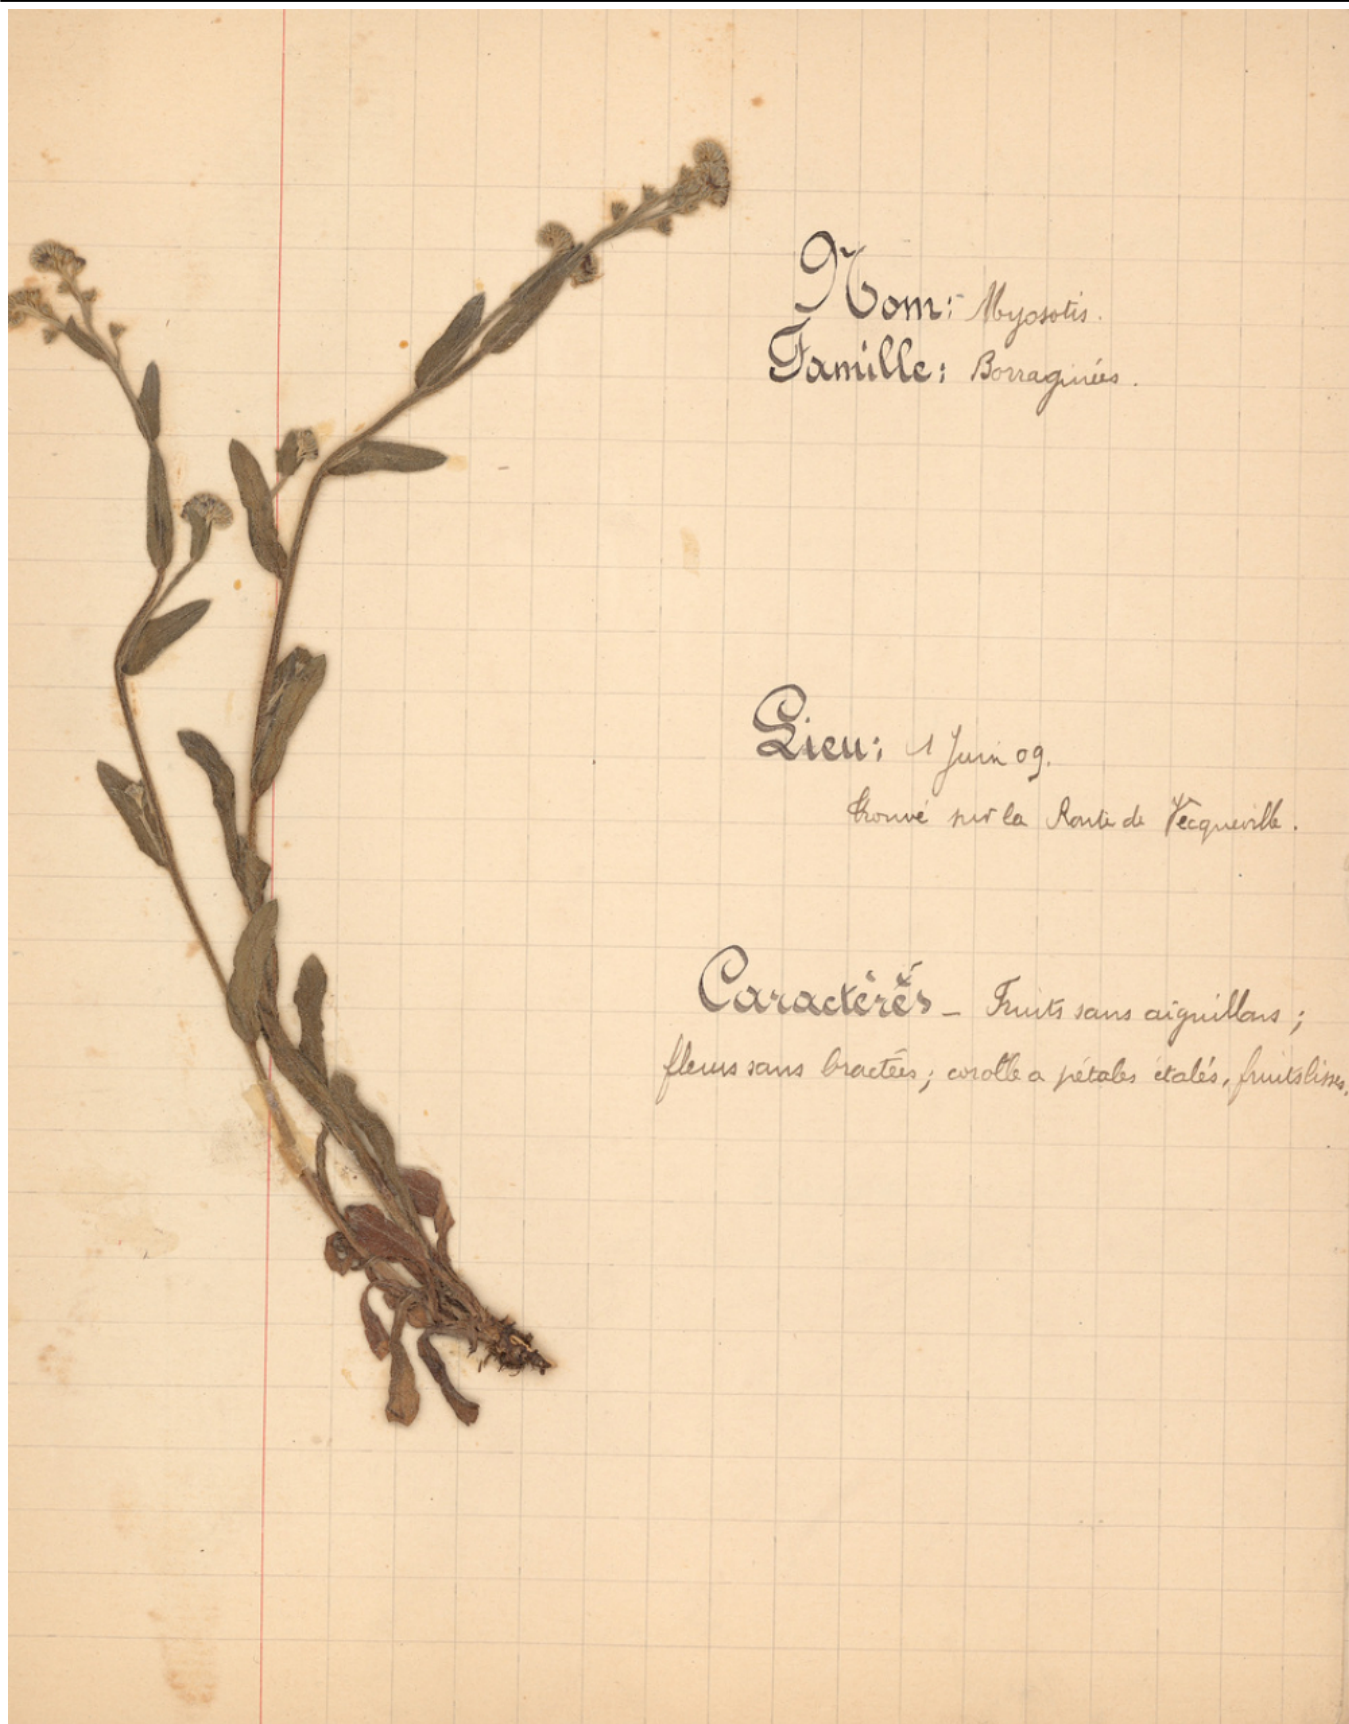 Nom: Myosotis.
Famille: Borraginées.
Lieu: 1 Juin 09.
trouvé sur la Route de Vecqueville.
Caractères - Fruits sans aiguillons;
fleurs sans bractées; corolle a pétales étalés, fruits lisses.